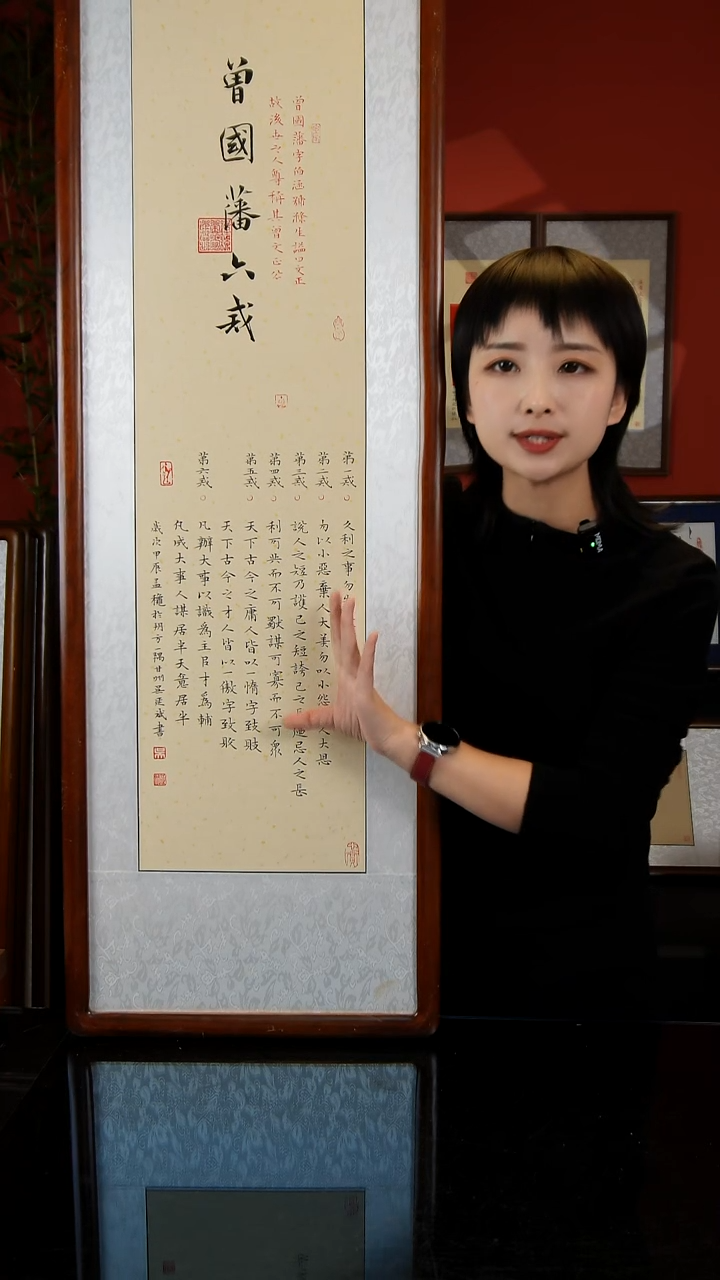 曾國藩六戒
曾國藩字伯涵號滌生諡曰文正
故後世之人尊稱其曾文正公
第一戒 久利之事勿
第二戒 勿以小惡棄人大美勿以小怨 人大恩
第三戒 說人之短乃護己之短誇己之長 忌人之長
第四戒 利可共而不可獨謀可寡而不可眾
第五戒 天下古今之庸人皆以一惰字致敗
天下古今之才人皆以一傲字致敗
第六戒 凡辦大事以識為主以才為輔
凡成大事人謀居半天意居半
歲次甲辰孟穐於朔方一隅甘州吳 書